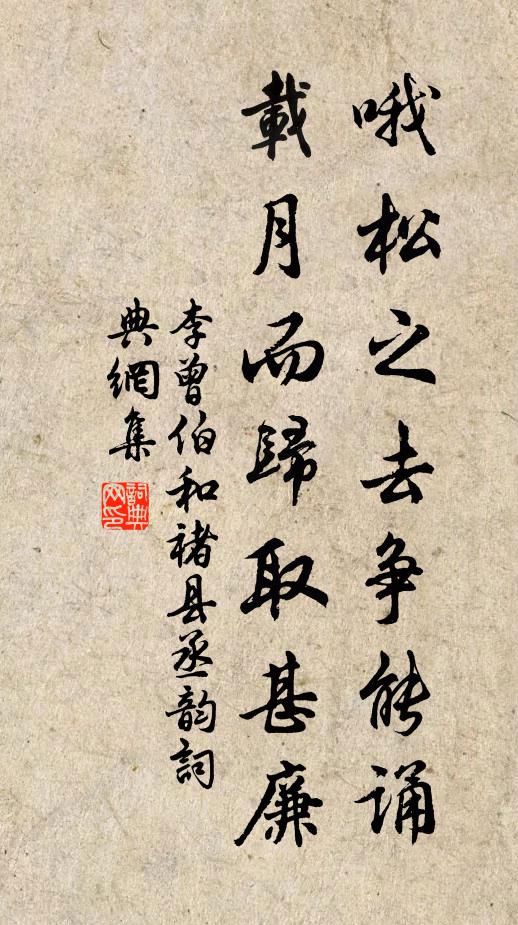 哦松之去争能诵
載月而歸取甚廉
李曾伯和褚县丞韵詞
典網集
詞典网印